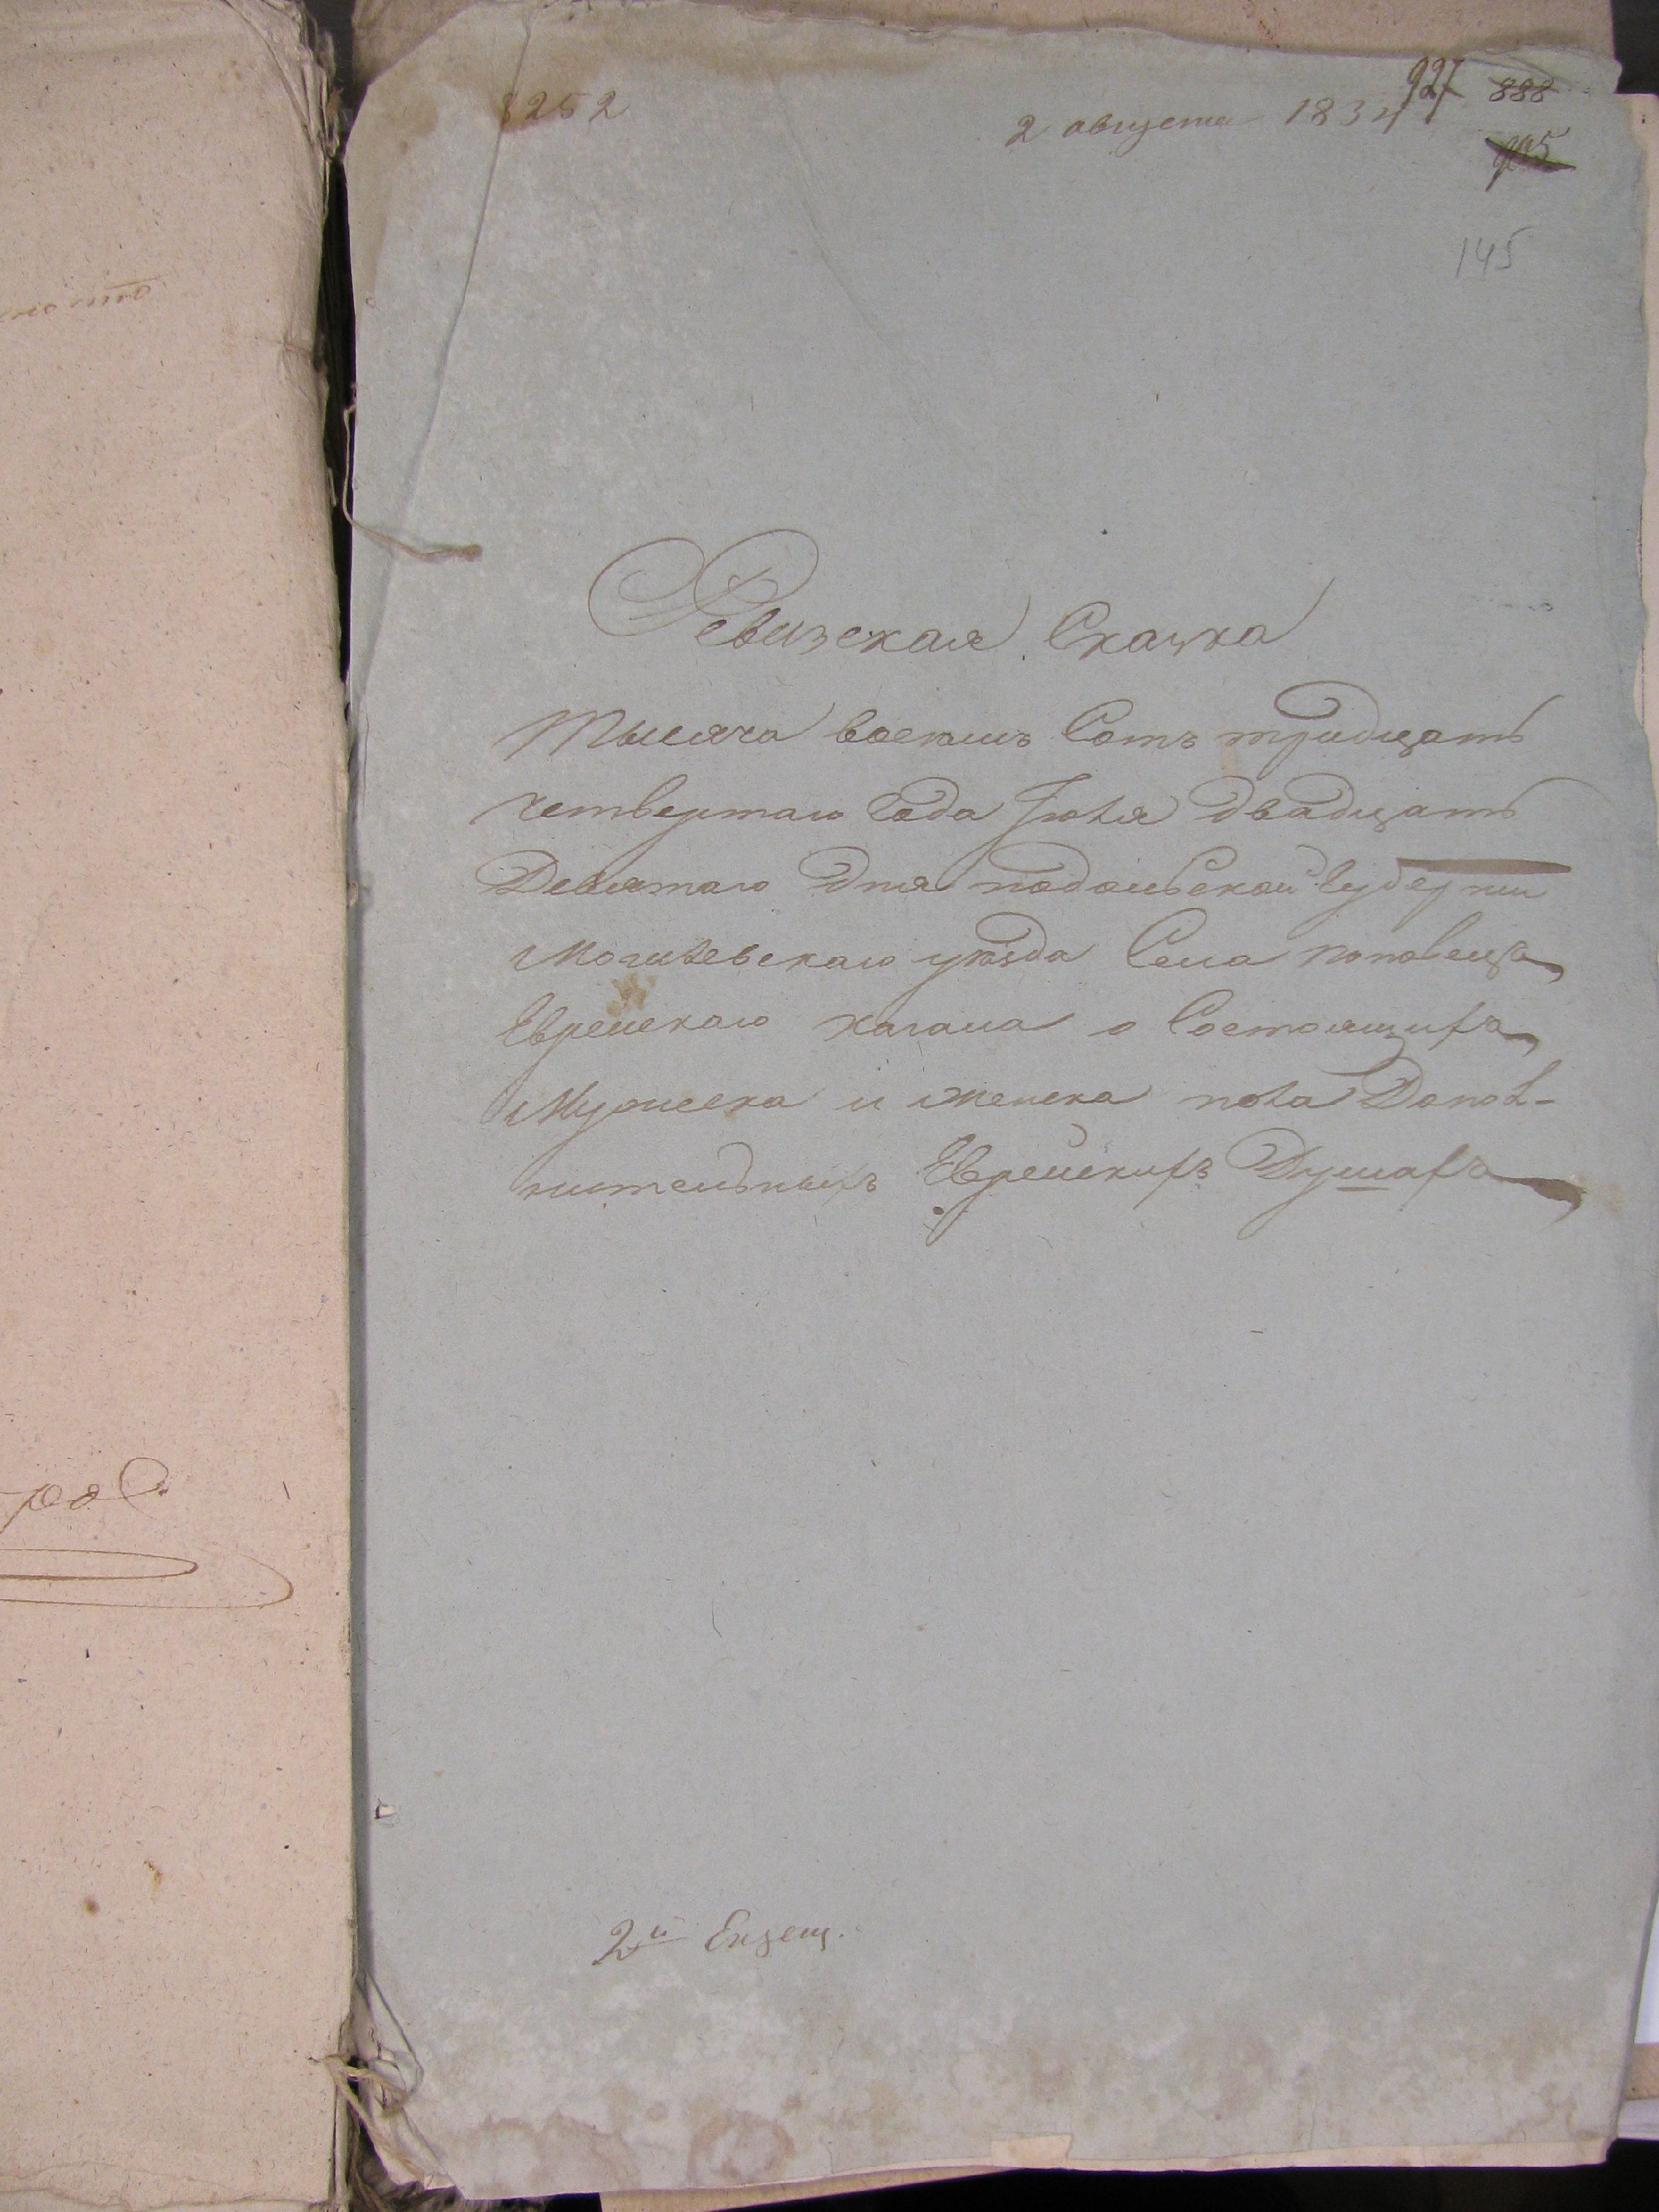 8252
2 августа 1834
927 888
905
145
Ревизская Сказка
Тысяча восемь Сотъ тридцать
четвертаго Года Іюля двадцать
Девятаго Дня подольской Губерніи
Могилевскаго уѣзда Села поповецъ
Еврейскаго кагала о Состоящихъ
Мужеска и женска пола Допол-
нительныхъ Еврейскихъ Душахъ
2й Екзем.